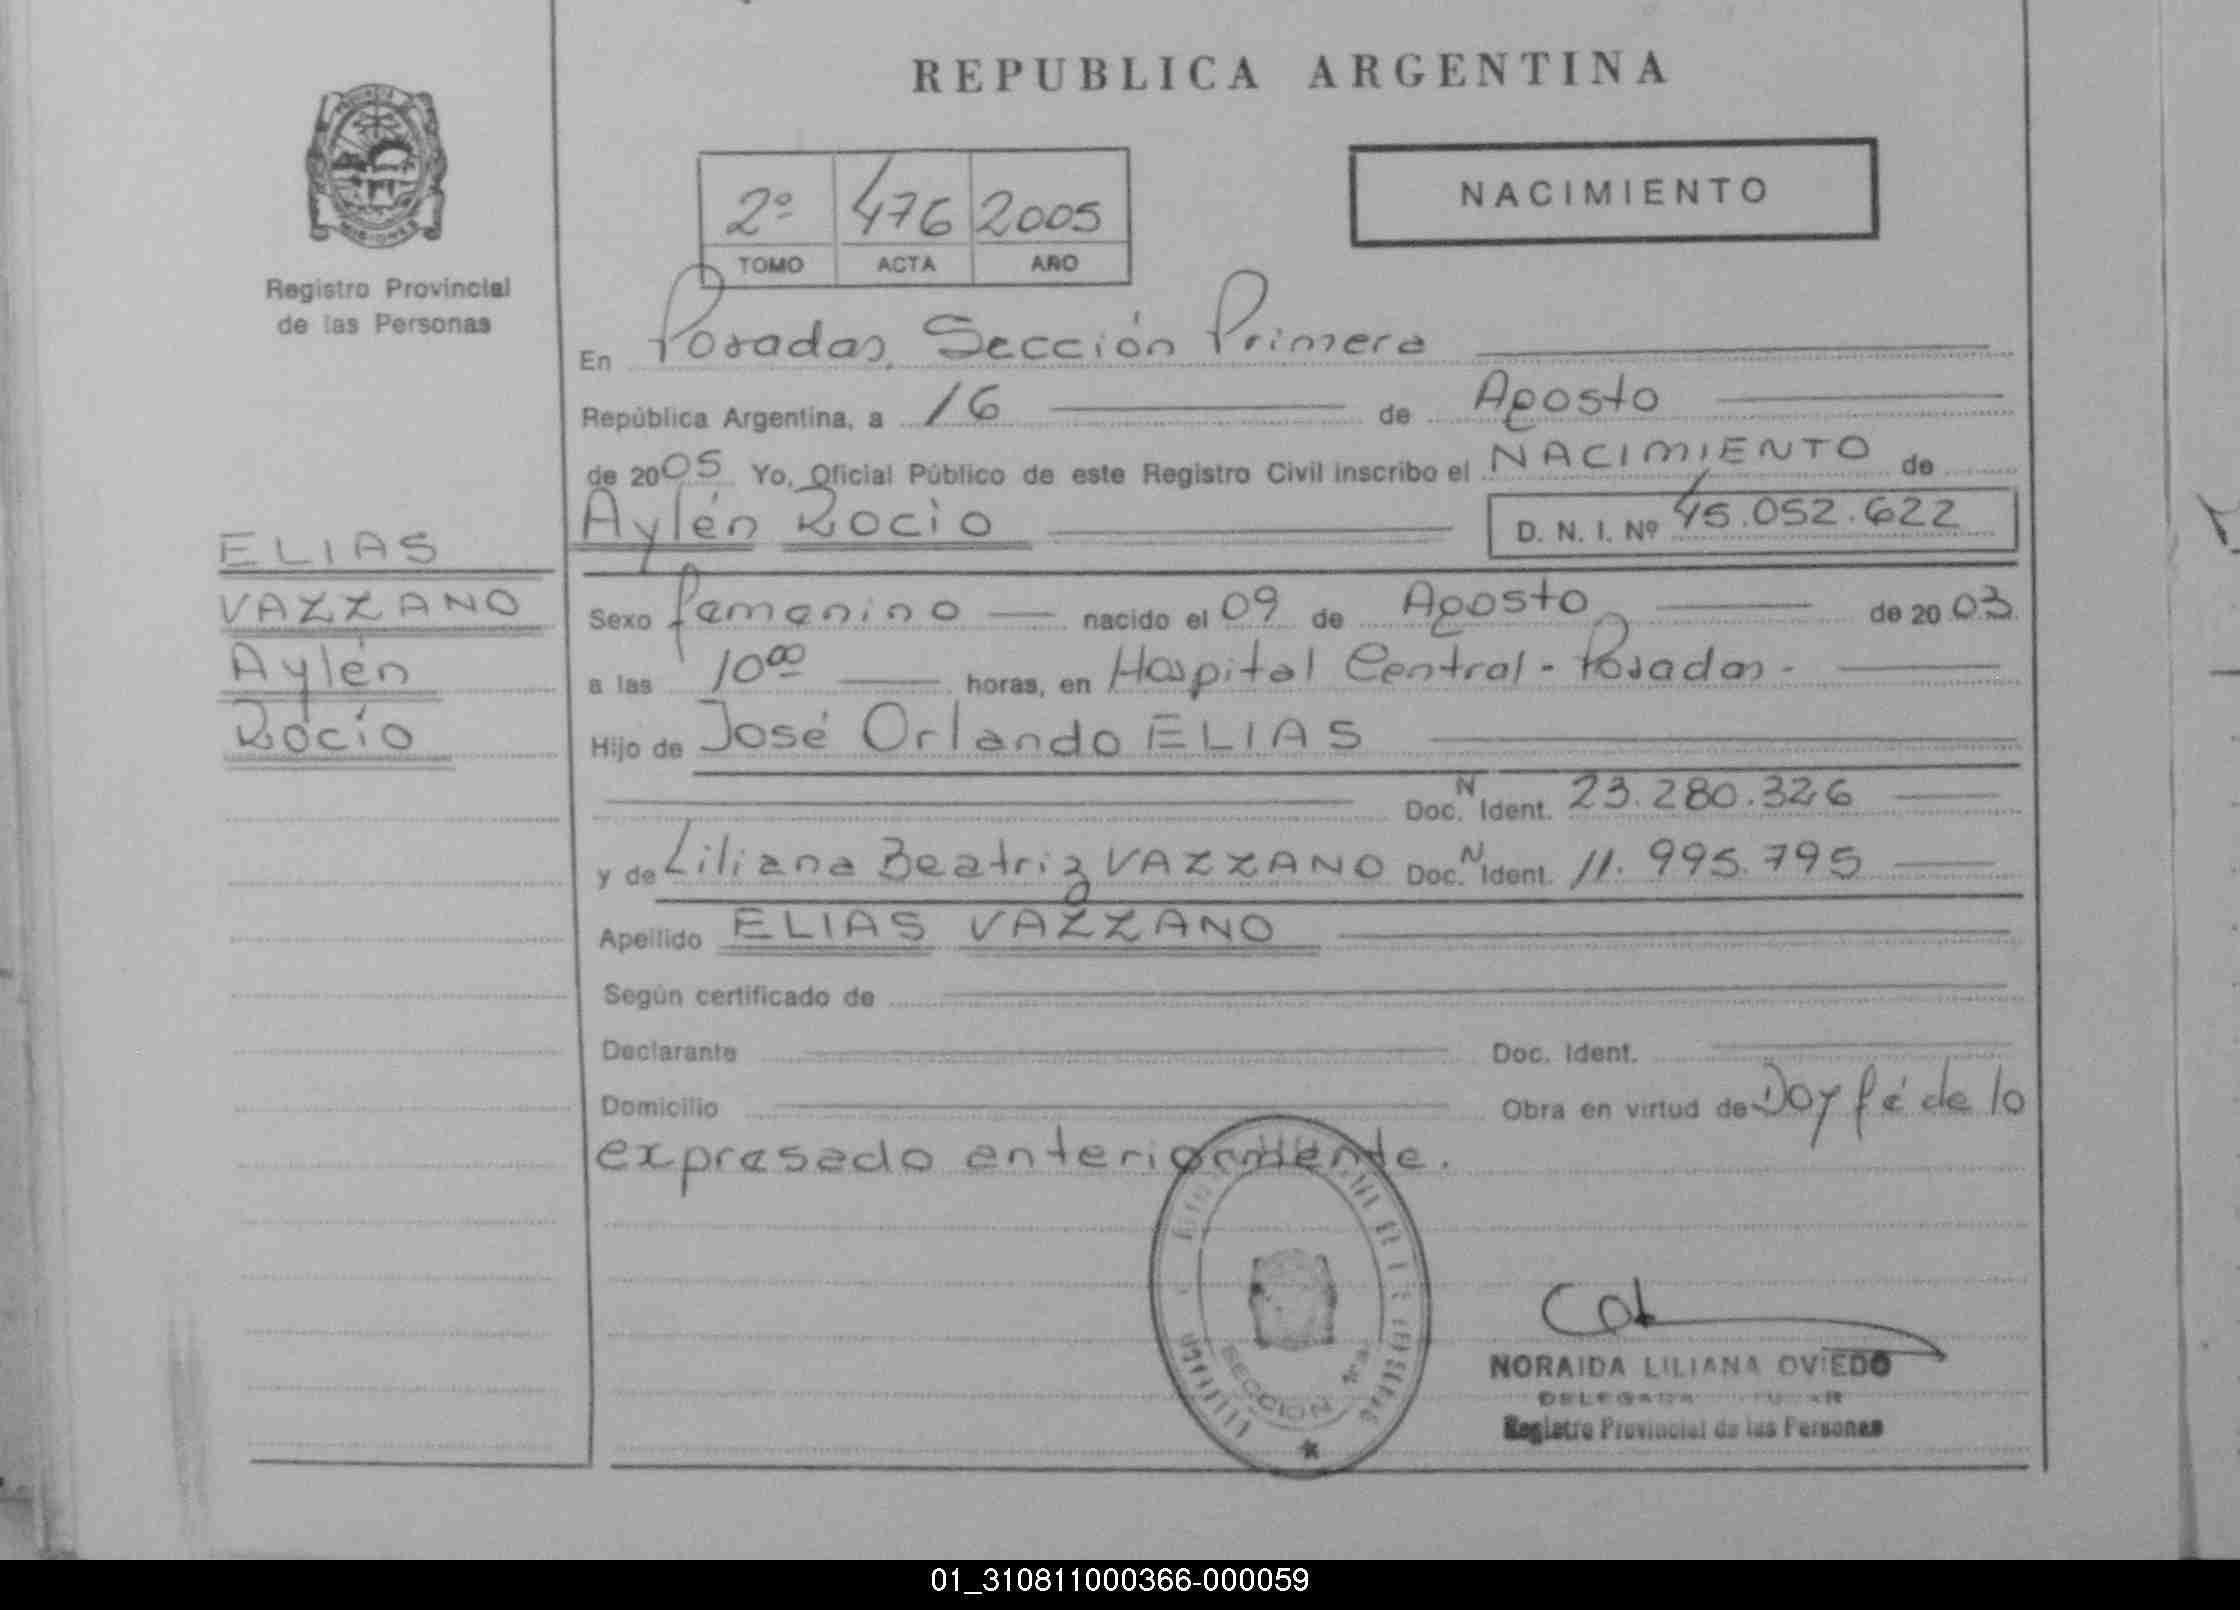 REPUBLICA ARGENTINA
2º 476 2005
TOMO ACTA AÑO
NACIMIENTO
MISIONES
Registro Provincial
de las Personas
En Posadas, Sección Primera
República Argentina, a 16 de Agosto
de 2005 Yo, Oficial Público de este Registro Civil inscribo el NACIMIENTO de
Aylén Rocio D. N. I. Nº 45.052.622
ELIAS
VAZZANO
Aylén
Rocío
Sexo femenino nacido el 09 de Agosto de 2003
a las 10⁰⁰ horas, en Hospital Central - Posadas -
Hijo de José Orlando ELIAS
Doc. N Ident. 23.280.326
y de Liliana Beatriz VAZZANO Doc. N Ident. 11.995.795
Apellido ELIAS VAZZANO
Según certificado de
Declarante Doc. Ident.
Domicilio Obra en virtud de Doy fé de lo
expresado anteriormente.
SECCION 1ra.
NORAIDA LILIANA OVIEDO
DELEGADA
Registro Provincial de las Personas
01_310811000366-000059